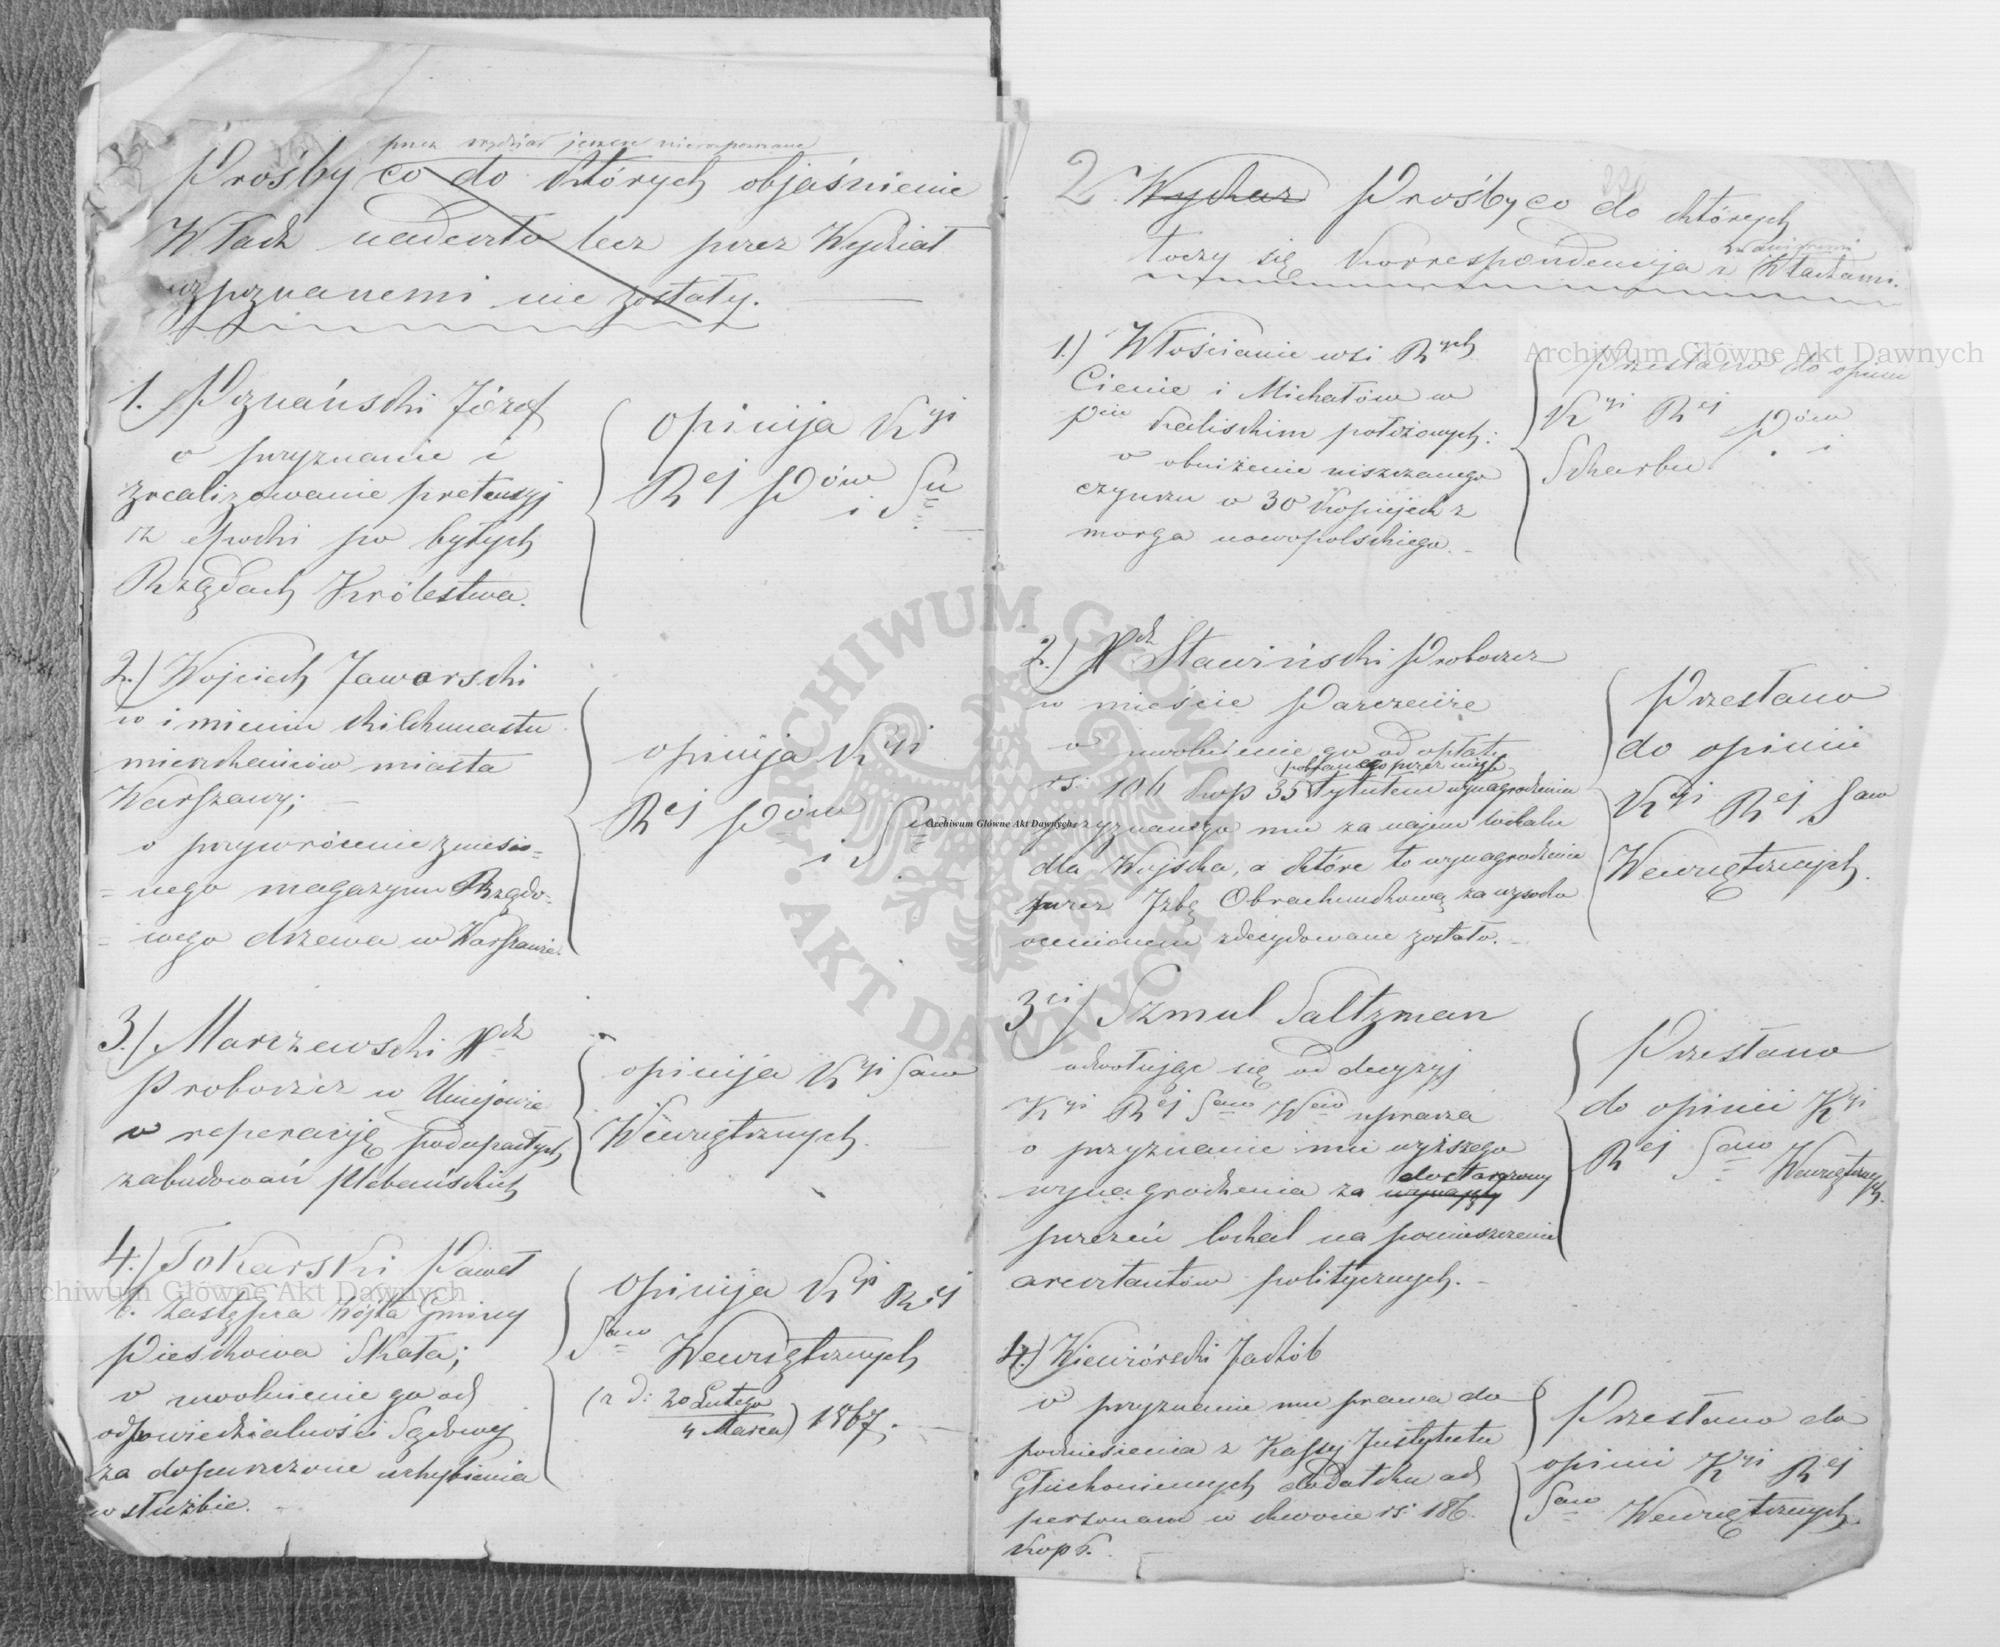 przez wydział jeszcze nierozpoznane
Prośby co do których objaśnienie
Władz nadeszło lecz przez Wydział
rozpoznanemi nie zostały.
1. Poznański Józef
o przyznanie i
zrealizowanie pretensyj
z epoki po byłych
Rządach Królestwa.
opinija Kyi
Rej Pów i Su
2.) Wojciech Jaworski
w imieniu kilkunastu
mieszkańców miasta
Warszawy;
o przywrócenie zniesio=
=nego magazynu Rządo=
=wego drzewa w Warszawie.
opinija Kyi
Rej Pów
i Su
3.) Marczewski Xdz
Proboszcz w Uniejowie
o reperacyję podupadłych
zabudowań plebańskich
opinija Kyi Saw
Wewnętrznych.
4.) Tokarski Paweł
b. zastępca Wójta Gminy
Pieskowa Skała;
o uwolnienie go od
odpowiedzialności Sądowej
za dopuszczone uchybienia
w służbie.
opinija Kyi Rej
Saw
Wewnętrznych
(z d: 20 Lutego
4 Marca) 1867.
2. Wykaz Prośby co do których
toczy się korrespondencyja z właściwemi Władzami.
1.) Włościanie wsi Rych
Cienie i Michałów w
Pcie Kaliskim położonych:
o obniżenie uiszczanego
czynszu o 30 kopiejek z
morga nowopolskiego.
Przesłano do opinii
Kyi Rej Pów
i
Skarbu
2.) Xdz Sławiński Proboszcz
w mieście Parczewie
o uwolnienie go od opłaty
pobranego przez niego
rs. 106 kop 35 tytułem wynagrodzenia
przyznanego mu za najem lokalu
dla Wojska, a które to wynagrodzenie
przez Izbę Obrachunkową za wysoko
ocenionem zdecydowane zostało.
Przesłano
do opinii
Kyi Rej Saw
Wewnętrznych.
3ci) Szmul Saltzman
odwołując się od decyzyj
Kyi Rej Saw Wew uprasza
o przyznanie mu wyższego
wynagrodzenia za wynajęty dostarczony
przezeń lokal na pomieszczenie
aresztantów politycznych.
Przesłano
do opinii Kyi
Rej Saw
Wewnętrznych.
4.) Wiewiórski Jakób
o przyznanie mu prawa do
podniesienia z Kassy Instytutu
Głuchoniemych dodatku ad
personam w kwocie rs. 186.
kop 6.
Przesłano do
opinii Kyi Rej
Saw Wewnętrznych.
Archiwum Główne Akt Dawnych
Archiwum Główne Akt Dawnych
Archiwum Główne Akt Dawnych
ARCHIWUM GŁÓWNE AKT DAWNYCH